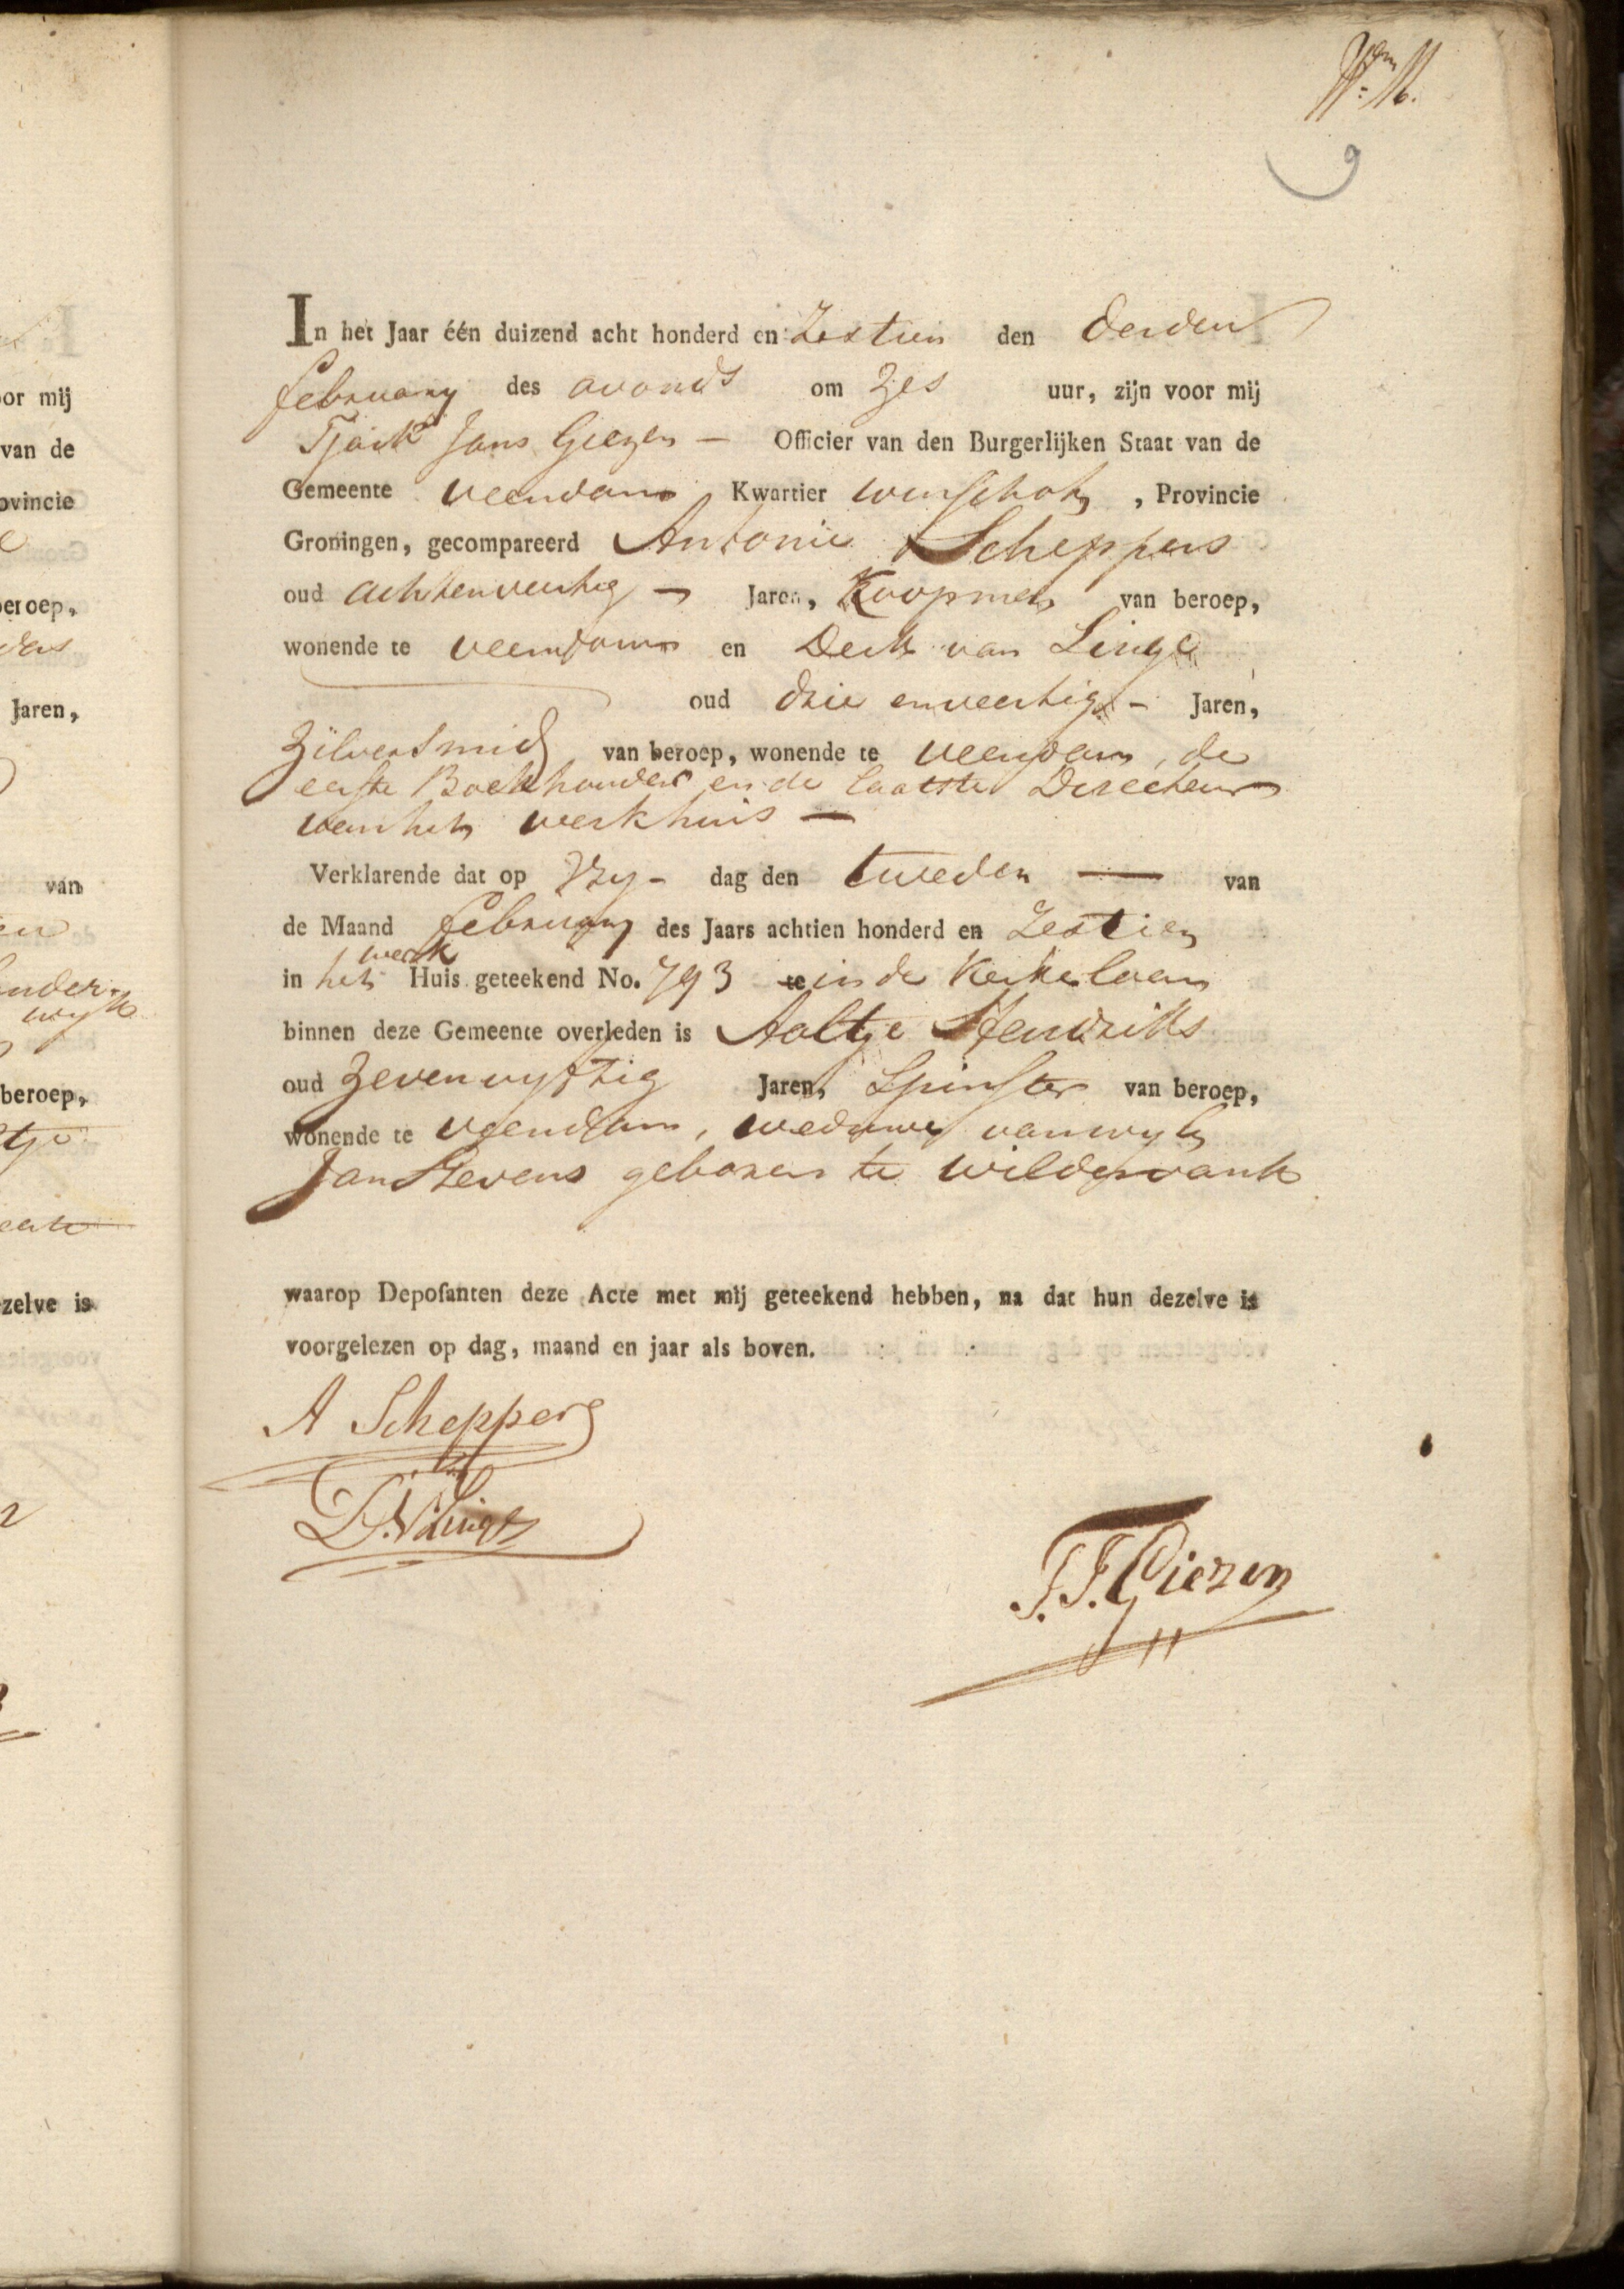 9
In het Jaar één duizend acht honderd en Zestien den derden
february des avonds om Zes uur, zijn voor mij
Tjark Jans Giezen — Officier van den Burgerlijken Staat van de
Gemeente veendam Kwartier winschoten, Provincie
Groningen, gecompareerd Antonie Scheppers
oud achtenveertig — Jaren, Koopman van beroep,
wonende te veendam en Derk van Linge
oud drie enveertig — Jaren,
Zilversmid van beroep, wonende te veendam, de
eerste Boekhouder en de laatste Directeur
van het werkhuis —
Verklarende dat op Vry- dag den tweeden — van
de Maand february des Jaars achtien honderd en Zestien
in het werk Huis geteekend No. 793 te in de Kerkelaan
binnen deze Gemeente overleden is Aaltje Hendriks
oud Zevenvyftig Jaren, Spinster van beroep,
wonende te veendam, weduwe van wyle
Jan Stevens geboren te wildervank
waarop Deposanten deze Acte met mij geteekend hebben, na dat hun dezelve is
voorgelezen op dag, maand en jaar als boven.
A Scheppers
D. V Linge
T. J. Giezen
oor mij
van de
ovincie
beroep,
Jaren,
van
beroep,
zelve is